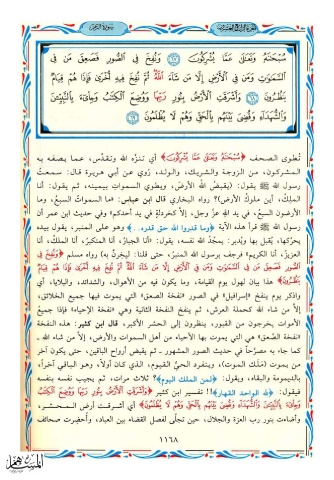 سورة الزمر
سُبْحَنَهُ وَتَعَلَى عَمَّا يُشْرِكُونَ ۝ وَنُفِخَ فِي الصُّورِ فَصَعِقَ مَن فِي
السَّمَوَتِ وَمَن فِي الْأَرْضِ إِلَّا مَن شَاءَ اللَّهُ ثُمَّ نُفِخَ فِيهِ أُخْرَى فَإِذَا هُمْ قِيَامٌ
يَنظُرُونَ ۝ وَأَشْرَقَتِ الْأَرْضُ بِنُورِ رَبِّهَا وَوُضِعَ الْكِتَبُ وَجِاْىءَ بِالنَّبِيِّنَ
وَالشُّهَدَاءِ وَقُضِيَ بَيْنَهُم بِالْحَقِّ وَهُمْ لَا يُظْلَمُونَ ۝
تُطوى الصحف ﴿سُبْحَنَهُ وَتَعَلَى عَمَّا يُشْرِكُونَ﴾ أي تنزَّه الله وتقدَّس، عما يصفه به
المشركون، من الزوجة والشريك، والولد، رُوي عن أبي هريرة قال: سمعتُ
رسول الله ﷺ يقول: (يقبضُ اللَّهُ الأرضَ، ويطوي السموات بيمينه، ثم يقول: أنا
الملِكُ، أين ملوكُ الأرض؟) رواه البخاري قال ابن عباس: (ما السمواتُ السبعُ، وما
الأرضون السبعُ، في يد اللهِ عزَّ وجل، إلاَّ كخردلةٍ في يد أحدكم) وفي حديث ابن عمر أن
رسول الله ﷺ قرأ هذه الآية ﴿وما قدروا الله حق قدره..﴾ وهو على المنبر، يقول بيده
يحرِّكها، يُقبل بها ويُدبر: يمجِّدُ اللَّهُ نفسه، يقول: «أنا الجبارُ، أنا المتكبرُ، أنا الملكُ، أنا
العزيزُ، أنا الكريم» فرجف برسول الله المنبرُ، حتى قلنا: ليخرنَّ به) رواه مسلم ﴿وَنُفِخَ فِي
الصُّورِ فَصَعِقَ مَن فِي السَّمَوَتِ وَمَن فِي الْأَرْضِ إِلَّا مَن شَاءَ اللَّهُ ثُمَّ نُفِخَ فِيهِ أُخْرَى فَإِذَا هُمْ قِيَامٌ
يَنظُرُونَ﴾ هذا بيان لهول يوم القيامة، وما يكون فيه من الأهوال، والشدائد، والبلايا، أي
واذكر يوم ينفخ «إسرافيل» في الصور «نفخة الصعق» التي يموت فيها جميع الخلائق،
إلاَّ من شاء الله كحملة العرش، ثم ينفخ النفخة الثانية وهي «نفخة الإحياء» فإذا جميعُ
الأموات يخرجون من القبور، ينظرون إلى الحشر الأكبر، قال ابن كثير: هذه النفخة
«نفخة الصَّعْق» هي التي يموت بها الأحياء من أهل السموات والأرض، إلاَّ من شاء الله،
كما جاء به مصرَّحاً في حديث الصور المشهور.. ثم يقبض أرواح الباقين، حتى يكون آخر
من يموت (مَلَكُ الموت)، وينفرد الحيُّ القيوم، الذي كان أولاً، وهو الباقي آخراً،
بالديمومة والبقاء، ويقول: ﴿لمن الملك اليوم﴾؟ ثلاث مرات، ثم يجيب نفسه بنفسه
فيقول: ﴿لله الواحد القهار﴾!! تفسير ابن كثير ﴿وَأَشْرَقَتِ الْأَرْضُ بِنُورِ رَبِّهَا وَوُضِعَ الْكِتَبُ
وَجِاْىءَ بِالنَّبِيِّنَ وَالشُّهَدَاءِ وَقُضِيَ بَيْنَهُم بِالْحَقِّ وَهُمْ لَا يُظْلَمُونَ﴾ أي أشرقت أرض المحشر،
وأضاءت بنور رب العزة والجلال، حين تجلَّى لفصل القضاء بين العباد، وأُحضرت صحائف
١١٦٨